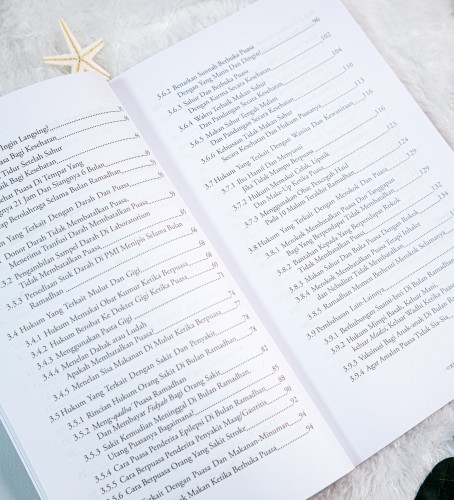 Ingin Langsing!
asa Bagi Kesehatan
Tidur Setelah Sahur
aik Bagi Kesehatan
rbuka Puasa Di Tempat Yang
gnya 21 Jam Dan Siangnya 6 Bulan
ap Berolahraga Selama Bulan Ramadhan
um Yang Terkait Dengan Darah Dan Puasa
Donor Darah Tidak Membatalkan Puasa
Menerima Tranfusi Darah Membatalkan Puasa
3.3.2 Pengambilan Sampel Darah Di Laboratorium
Tidak Membatalkan Puasa
3.3.3 Persediaan Stok Darah Di PMI Menipis Selama Bulan
Ramadhan
3.4 Hukum Yang Terkait Mulut Dan Gigi
3.4.1 Hukum Memakai Obat Kumur Ketika Berpuasa
3.4.2 Hukum Berobat Ke Dokter Gigi Ketika Puasa
3.4.3 Menggunakan Pasta Gigi
3.4.4 Menelan Dahak atau Ludah
Apakah Membatalkan Puasa?
3.4.5 Menelan Sisa Makanan Di Mulut Ketika Berpuasa
3.5 Hukum Yang Terkait Dengan Sakit Dan Penyakit
3.5.1 Rincian Hukum Orang Sakit Di Bulan Ramadhan
3.5.2 Meng-qadha' Puasa Ramadhan
Dan Membayar Fidyah Bagi Orang Sakit
3.5.3 Sakit Kemudian Meninggal Di Bulan Ramadhan,
Utang Puasanya Bagaimana?
3.5.4 Cara Puasa Penderita Epilepsi Di Bulan Ramadhan
3.5.5 Cara Berpuasa Penderita Penyakit Maag/Gastritis
3.5.6 Cara Berpuasa Orang Yang Sakit Stroke
Terkait Dengan Puasa Dan Makanan-Minuman
Makan Ketika Berbuka Puasa
3.6.2 Benarkah Sunnah Berbuka Puasa
Dengan Yang Manis Dan Dingin? 96
3.6.3 Sahur Dan Berbuka Puasa
Dengan Kurma Secara Kesehatan 102
3.6.4 Waktu Terbaik Makan Sahur
Dan Pandangan Secara Kesehatan 104
3.6.5 Makan Sahur Tengah Malam
Dan Pandangan Secara Kesehatan 110
3.6.6 Kebiasaan Tidak Makan Sahur
Secara Kesehatan Dan Hukum Puasanya 113
3.7 Hukum Yang Terkait Dengan Wanita Dan Kewanitaan 116
3.7.1 Ibu Hamil Dan Menyusui
Jika Tidak Mampu Berpuasa 116
3.7.2 Hukum Memakai Celak, Lipstik
Dan Make-Up Pada Saat Puasa
3.7.3 Menggunakan Obat Pencegah Haid
Pada 10 Malam Terakhir Ramadhan
3.8 Hukum Yang Terkait Dengan Merokok Dan Puasa 129
3.8.1 Merokok Membatalkan Puasa Dan Tanggapan
Bagi Yang Berpendapat Tidak Membatalkan 129
3.8.2 Bantahan Kepada Yang Berpendapat Rokok
Tidak Membatalkan Puasa 132
3.8.3 Makan Sahur Dan Buka Puasa Dengan Rokok
3.8.4 Merokok Membatalkan Puasa Tetapi Inhaler
Ramadhan Momen Berhenti Merokok Selamanya
3.9 Pembahasan Lain-Lainnya
3.9.1 Berhubungan Suami-Istri Di Bulan Ramadhan
3.9.2 Hukum Mimpi Basah, Keluar Mani,
keluar Madzi, Keluar Wadhi Ketika Puasa
3.9.3 Vaksinasi Bagi Anak-anak Di Bulan
3.9.4 Agar Amalan Puasa Tidak Sia-Sia